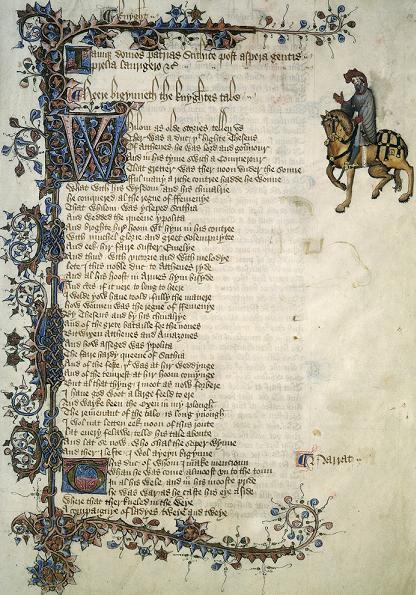 Knyght
Iamque domos patrias Scithice post aspera gentis
prelia laurigero &c
Heere bigynneth the knyghtes tale
Whilom as olde stories tellen vs
Ther was a duc þt highte Theseus
Of Atthenes he was lord and gouernour
And in his tyme swich a Conquerour
That gretter was ther noon vnder the sonne
fful many a riche contree hadde he wonne
What with his wysdom and his chiualrie
He conquered al the regne of ffemenye
That whilom was ycleped Scithia
And wedded the queene ypolita
And broghte hir hoom wt hym in his contree
With muchel glorie and greet solempnytee
And eek hir faire suster Emelye
And thus with victorie and with melodye
Lete I this noble duc to Atthenes ryde
And al his hoost in Armes hym bisyde
And certes if it nere to long to heere
I wolde yow haue toold fully the manere
How wonnen was the regne of ffemenye
By Theseus and by his chiualrye
And of the grete bataille for the nones
Bitwixen Atthenes and Amazones
And how asseged was ypolita
The faire hardy queene of Scithia
And of the feste þt was at hir weddynge
And of the tempest at hir hoom comynge
But al that thyng I moot as now forbere
I haue god woot a large feeld to ere
And wayke been the oxen in my plough
The remenant of the tale is long ynough
I wol nat letten eek noon of this route
Lat euery felawe telle his tale aboute
And lat se now who shal the soper wynne
And ther I lefte I wol ayeyn bigynne
Narrat
This duc of whom I make mencioun
Whan he was come almoost vn to the toun
In al his wele and in his mooste pride
He was war as he caste his eye aside
Where that ther kneled in the weye
A compaignye of ladyes tweye and tweye